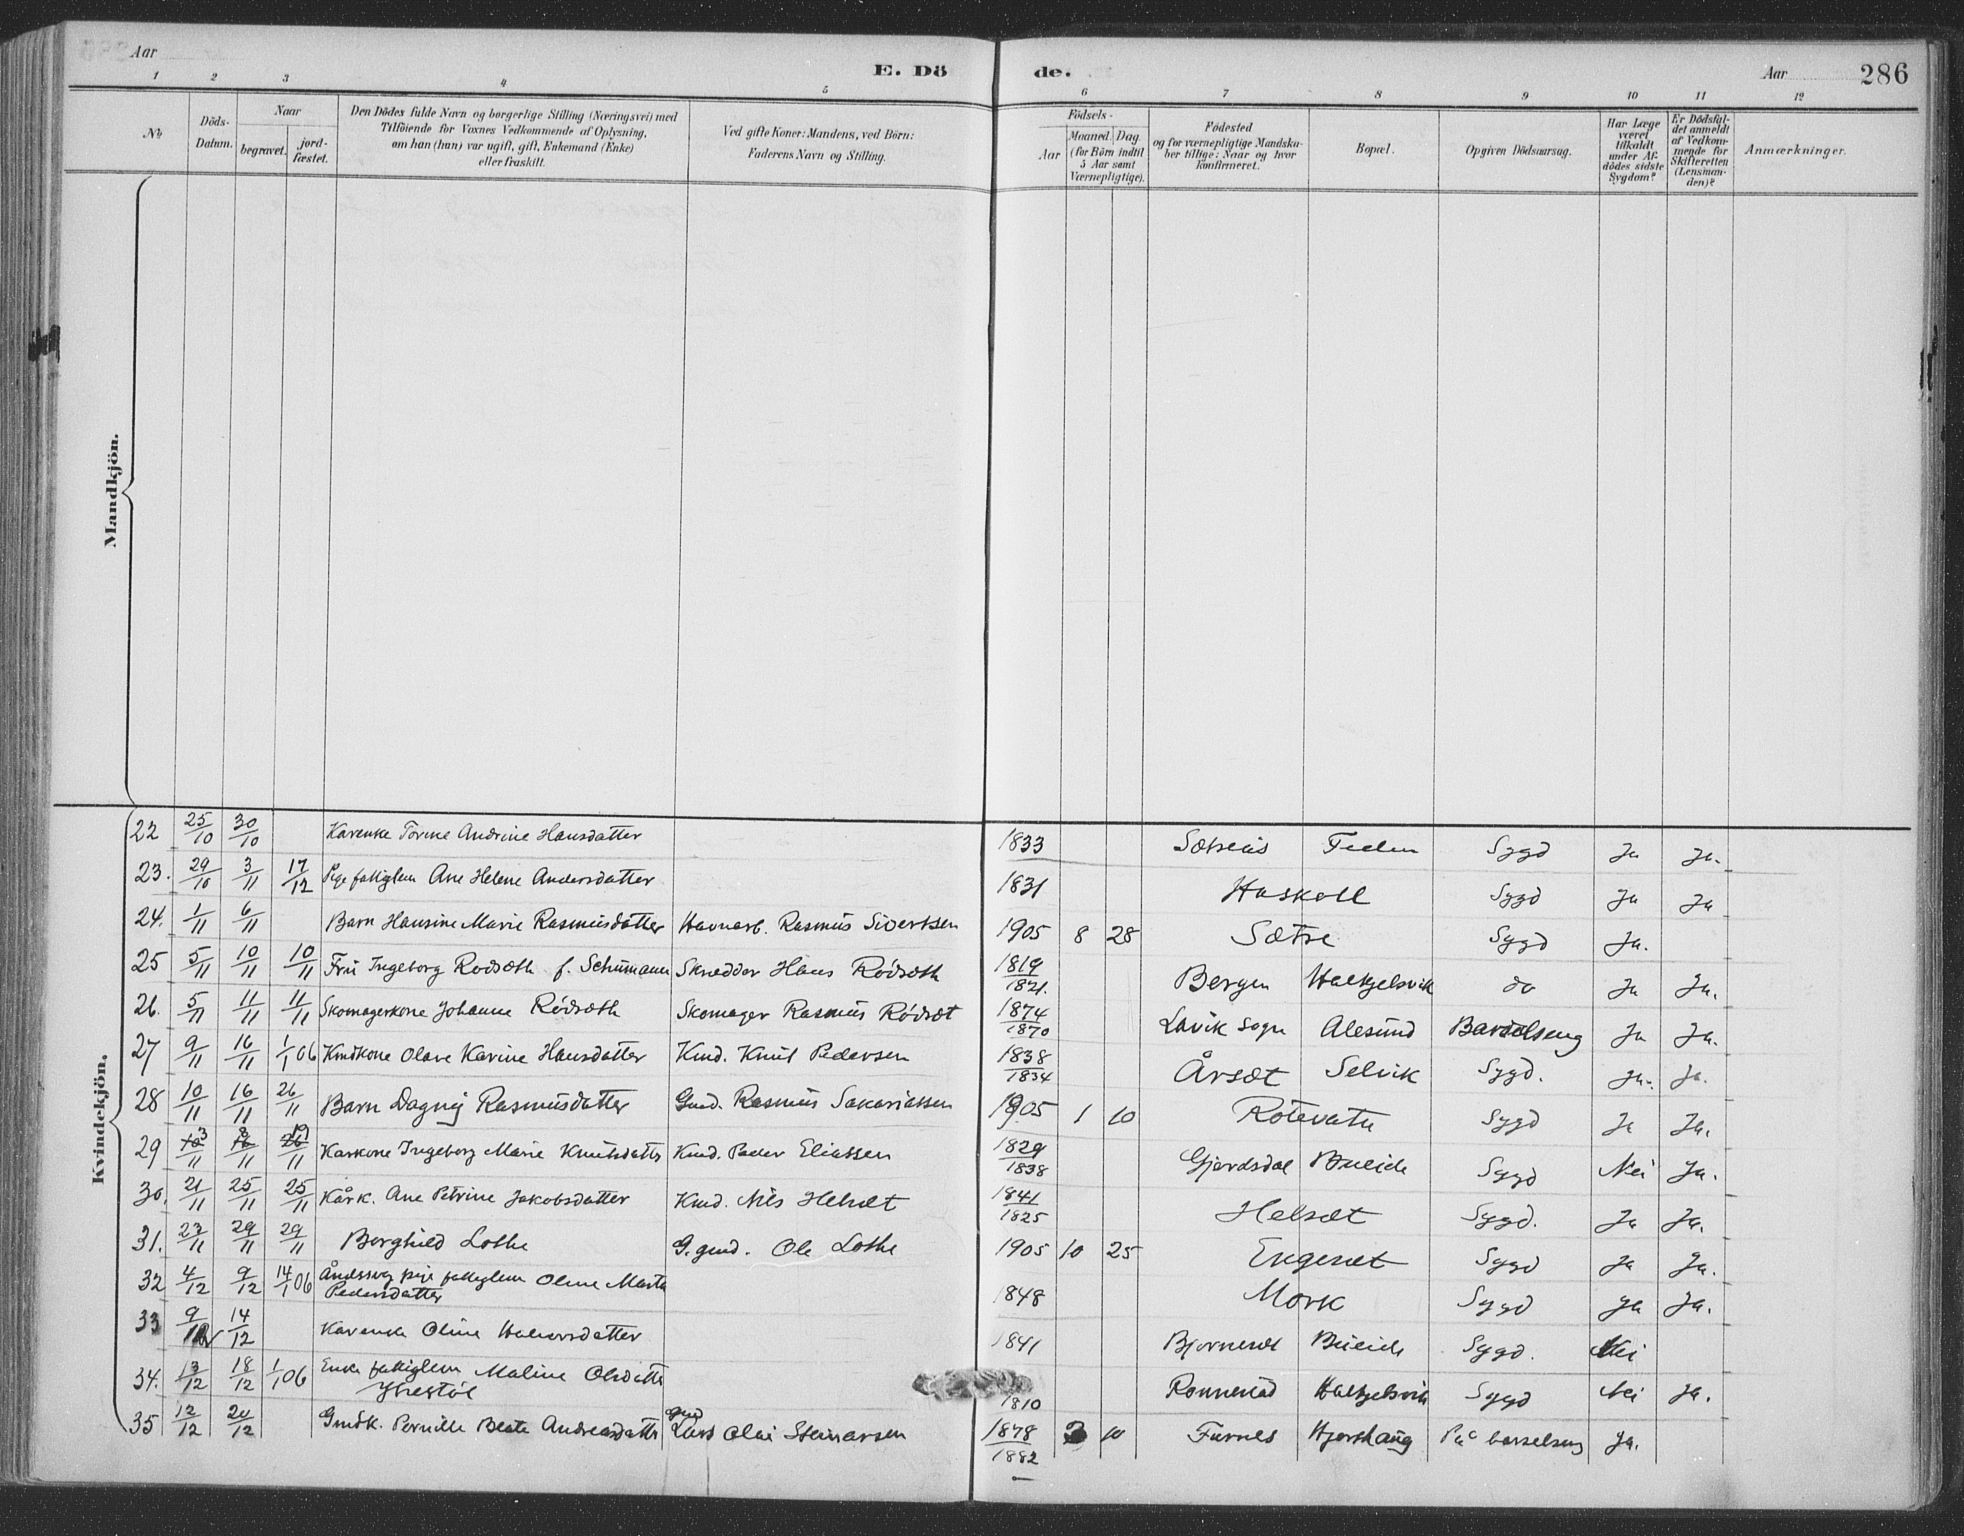 Aar
E. Dö
de.
Aar
286
1 2 3 4 5 6 7 8 9 10 11 12
№
Döds-
Datum.
Naar
begravet.
jord-
fæstet.
Den Dödes fulde Navn og borgerlige Stilling (Næringsvei) med
Tilföiende for Voxnes Vedkommende af Oplysning,
om han (hun) var ugift, gift, Enkemand (Enke)
eller fraskilt.
Ved gifte Koner: Mandens, ved Börn:
Faderens Navn og Stilling.
Födsels-
Aar
Maaned
Dag
(for Börn indtil
5 Aar samt
Værnepligtige).
Födested
og for værnepligtige Mandska-
ber tillige: Naar og hvor
konfirmeret.
Bopæl.
Opgiven Dödsaarsag.
Har Læge
været
tilkaldt
under Af-
dödes sidste
Sygdom?
Er Dödsfal-
det anmeldt
af Vedkom-
mende for
Skifteretten
(Lensman-
den)?
Anmærkninger.
Mandkjön.
Kvindekjön.
22 25/10 30/10 Karenke Torine Andrine Hansdatter 1833 Sygd Ja Ja.
23. 29/10 3/11 17/12 Pige fattiglem Ane Helene Andersdatter 1831 Haskoll Sygd Ja Ja
24. 1/11 6/11 Barn Hansine Marie Rasmusdatter Havnarb. Rasmus Sivertsen 1905 8 28 Sætre Sygd Ja.
25 5/11 10/11 10/11 Fru Ingeborg Rödsæth f. Schumann Skredder Hans Rödsæth 1819/1821. Bergen Halkjelsvik do Ja Ja.
26. 5/11 11/11 11/11 Skomagerkone Johanne Rödsæth Skomager Rasmus Rödsæt 1874/1870 Lavik Sogn Alesund Barselseng Ja Ja.
27 9/11 16/11 1/1 06 Kmdkone Olave Karine Hansdatter Kmd. Knut Pedersen 1838/1834 Årsæt Selvik Sygd. Ja. Ja.
28 10/11 16/11 26/11 Barn Dagny Rasmusdatter Gmd. Rasmus Sakariassen 1905 1 10 Rotevatn Sygd Ja Ja.
29 3/11 8/11 19/11 Karkone Ingeborg Marie Knutsdatter Kmd. Peder Eliassen 1829/1838 Gjerdsdal Bueide Sygd Nei Ja.
30. 21/11 25/11 25/11 Kårk. Ane Petrine Jakobsdatter Kmd. Nils Helsæt 1841/1825 Helsæt Sygd. Ja Ja.
31. 23/11 29/11 29/11 Borghild Lothe G. gmd. Ole Lothe 1905 10 25 Engeset Sygd Ja Ja.
32 4/12 9/12 14/1 06 Åndssvag pige fattiglem Oline Marta
Pedersdatter 1848 Mork Sygd Ja Ja.
33 9/12 14/12 Karenke Oline Halvorsdatter 1841 Bjorneset Bueide Sygd. Nei
34. 13/12 18/12 1/1 06 Enke fattiglem Maline Olsdatter
Ytrestöl 1810 Ronnestad Halkjelsvik Sygd Nei Ja.
35 12/12 20/12 Gmdk. Pernille Beate Andreasdatter Gmd Lars Olai Steinarsen 1878/1882 3 10 Furnes Hjorthaug På barselseng Ja.